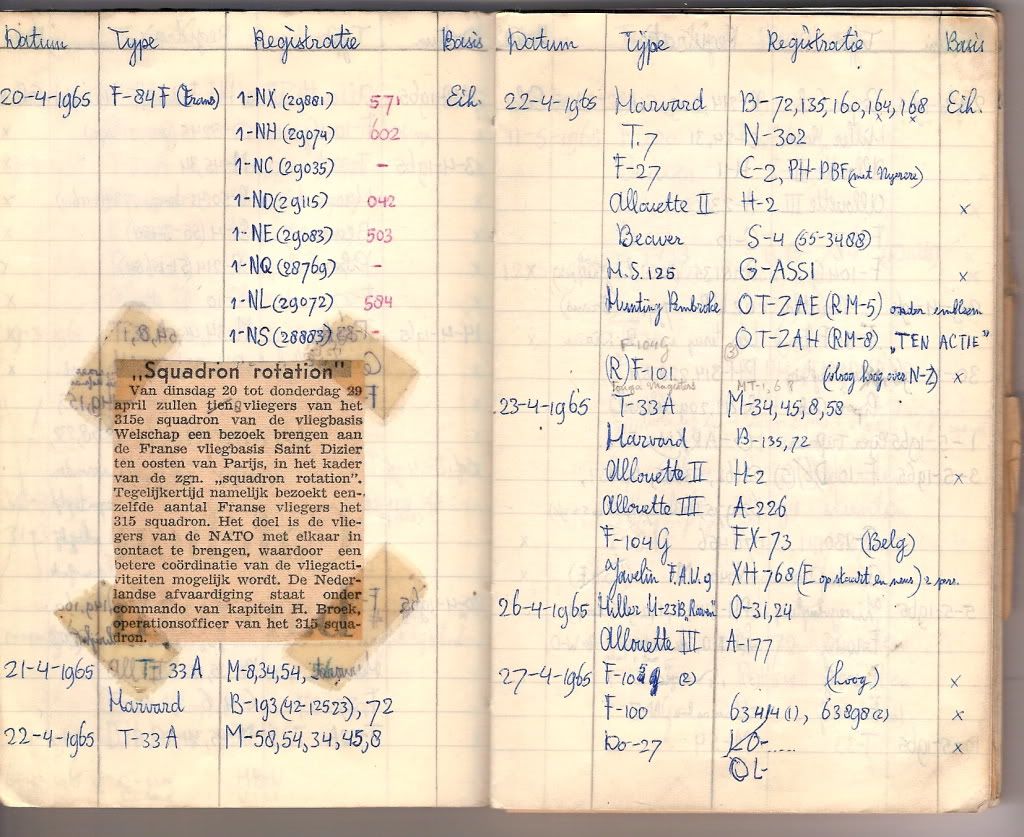 Datum Type Registratie Basis
20-4-1965 F-84F (Frans) 1-NX (29881) 571 Eih.
1-NH (29074) 602
1-NC (29035) -
1-ND (29115) 042
1-NE (29083) 503
1-NQ (28769) -
1-NL (29072) 584
1-NS (28883) -
„Squadron rotation”
Van dinsdag 20 tot donderdag 29
april zullen tien vliegers van het
315e squadron van de vliegbasis
Welschap een bezoek brengen aan
de Franse vliegbasis Saint Dizier
ten oosten van Parijs, in het kader
van de zgn. „squadron rotation”.
Tegelijkertijd namelijk bezoekt een-
zelfde aantal Franse vliegers het
315 squadron. Het doel is de vlie-
gers van de NATO met elkaar in
contact te brengen, waardoor een
betere coördinatie van de vliegacti-
viteiten mogelijk wordt. De Neder-
landse afvaardiging staat onder
commando van kapitein H. Broek,
operationsofficer van het 315 squa-
dron.
21-4-1965 T-33A M-8,34,54,
Harvard B-193 (42-12523), 72
22-4-1965 T-33A M-58,54,34,45,8
Datum Type Registratie Basis
22-4-1965 Harvard B-72,135,160,164,168 Eih.
T.7 N-302
F-27 C-2, PH-PBF (met Nyerere)
Allouette II H-2 x
Beaver S-4 (55-3488)
M.S.125 G-ASSI x
Hunting Pembroke OT-ZAE (RM-5) onder embleem
OT-ZAH (RM-8) „TEN ACTIE”
F-104G
(R)F-101 (3) (vloog hoog over N-Z) x
Fouga Magisters MT-1,6,8
23-4-1965 T-33A M-34,45,8,58
Harvard B-135,72
Allouette II H-2 x
Allouette III A-226
F-104G FX-73 (Belg)
Javelin F.A.W.9 XH-768 (E op staart en neus) 2 pers.
26-4-1965 Hiller H-23B „Raven” O-31,24
Allouette III A-177
27-4-1965 (2) (hoog) x
F-100 63414 (1), 63898 (2) x
Do-27 LO-..... x
OL-